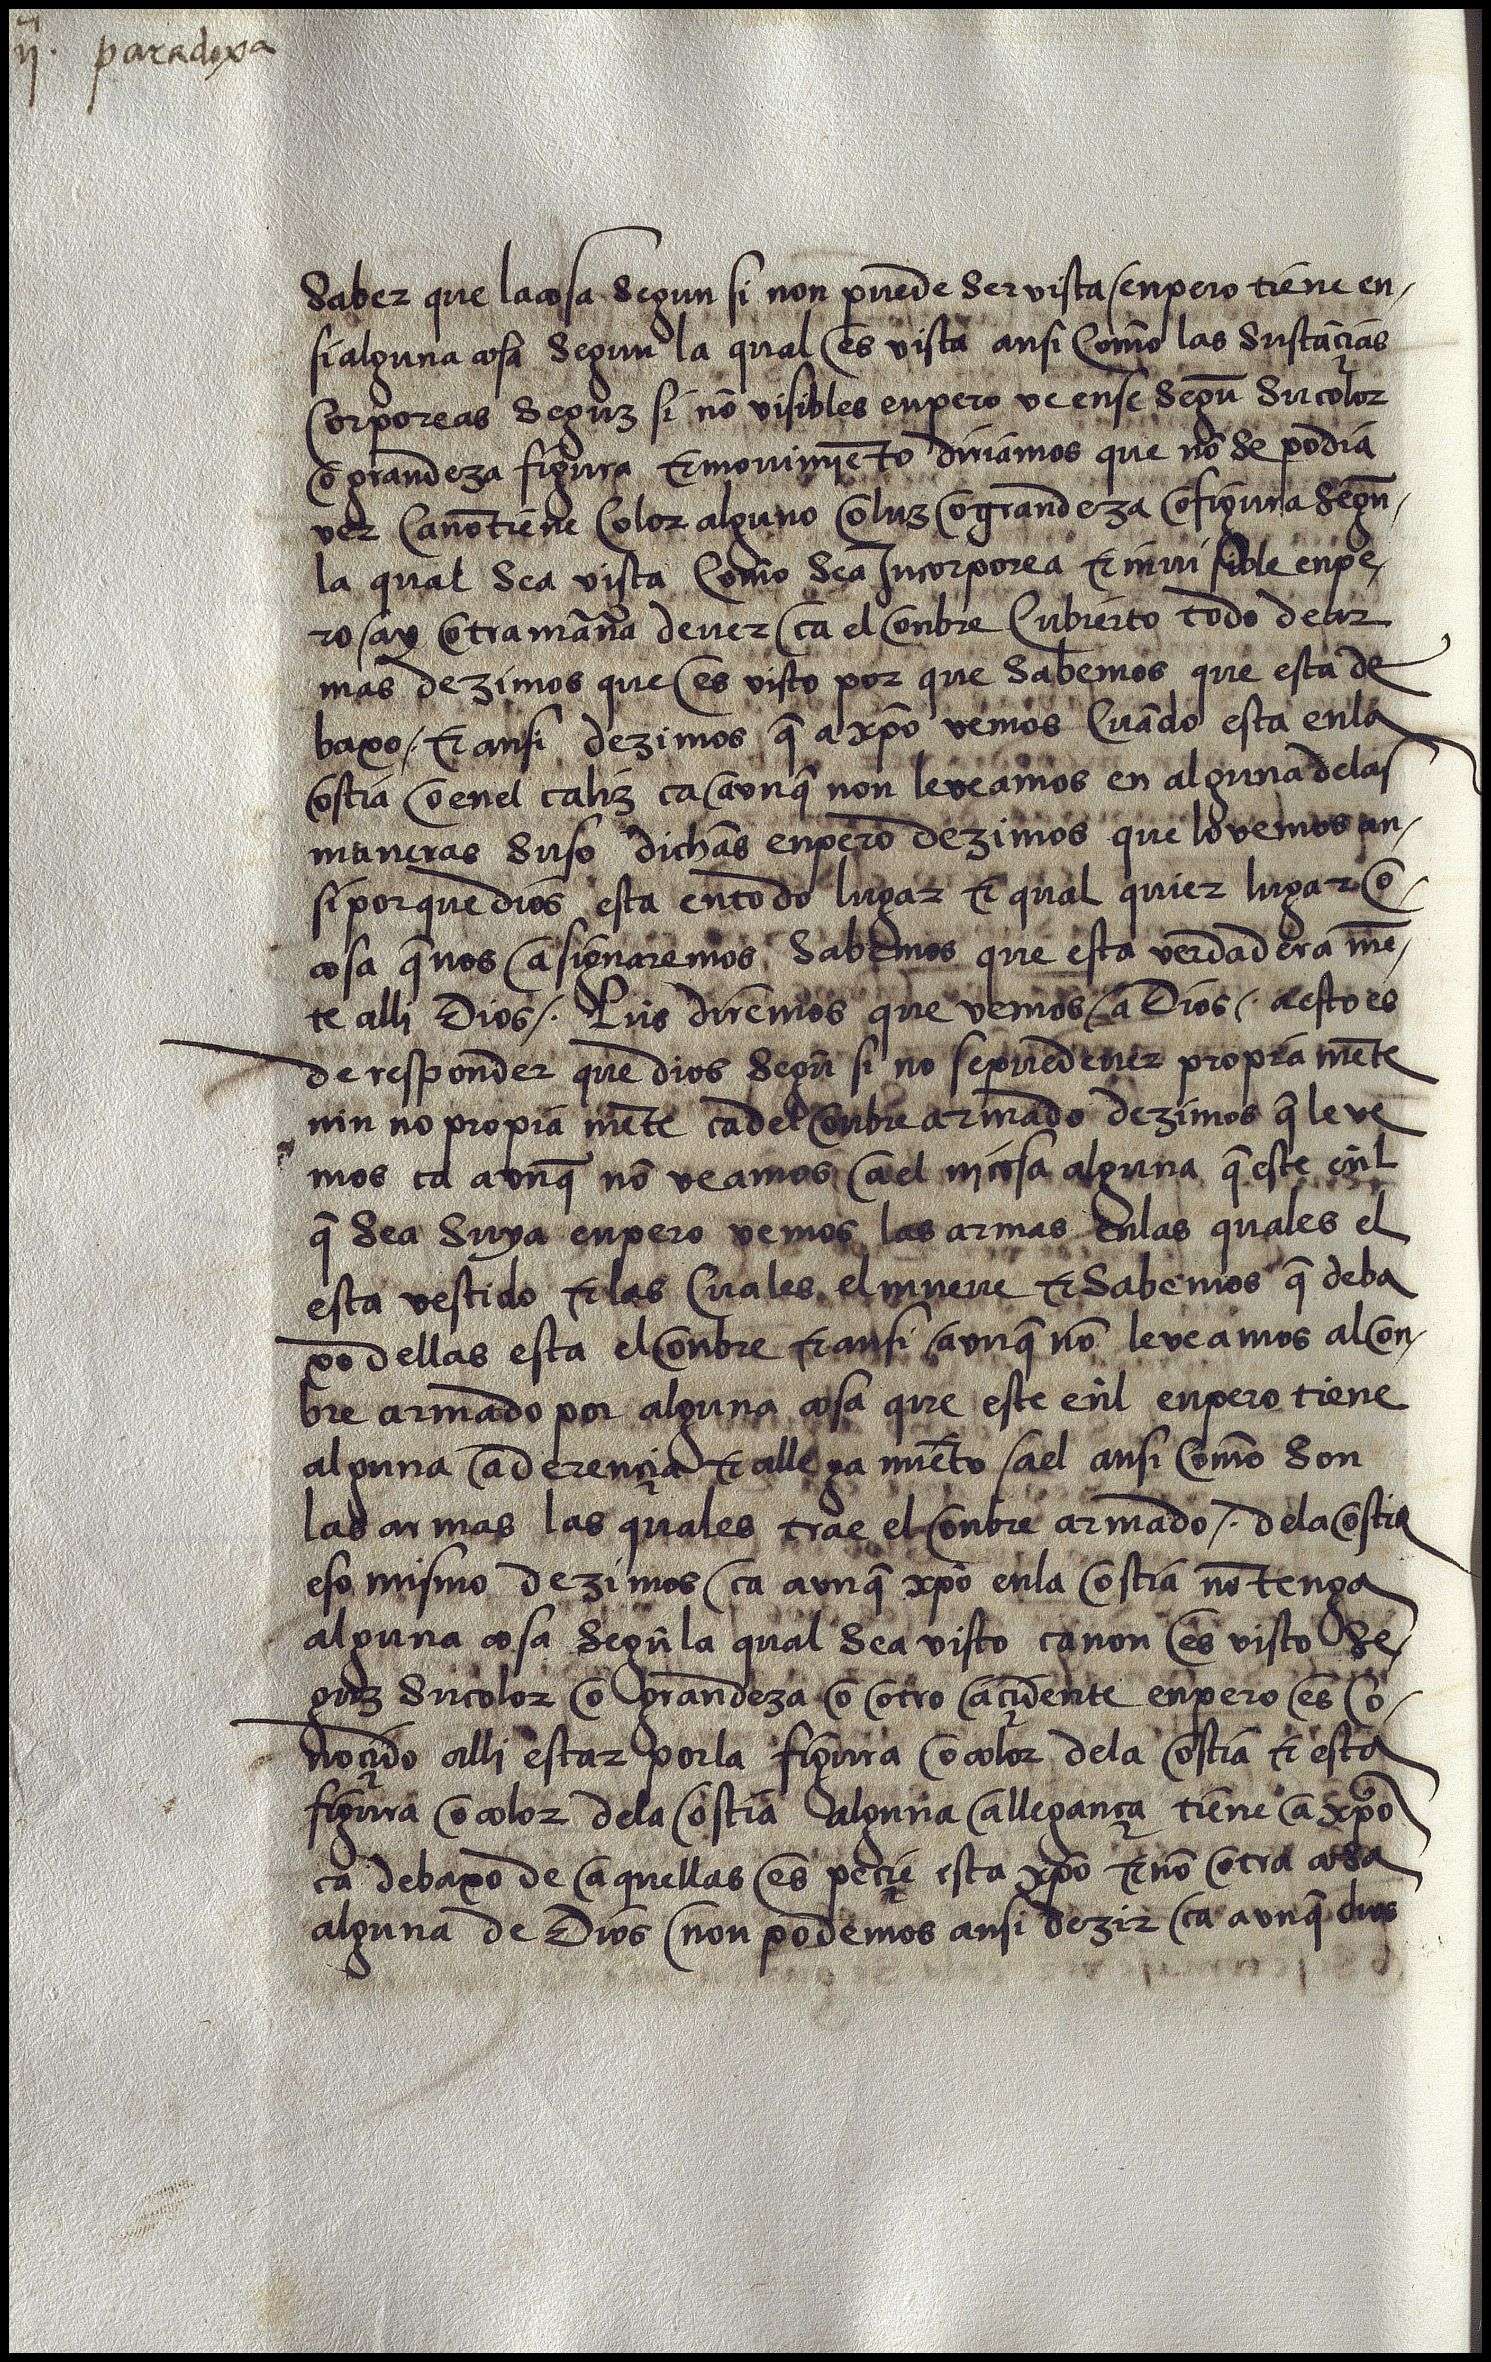 ij. paradoxa
Saber que la cosa Segun si non puede Ser vista / enpero tiene en
si alguna cosa Segun la qual es vista ansi Como las Sustãçias
Corporeas Segun si nõ visibles enpero veense Segũ Su color
o grandeza figura et mouimiẽto diriamos que nõ Se podia
ver Ca non tiene Color alguno o luz o grandeza o figura Segũ
la qual Sea vista Como Sea Incorporea et inuisible enpe
ro / ay otra manera de uer / ca el onbre Cubierto todo de ar
mas dezimos que es visto por que Sabemos que esta de
baxo /. et ansi dezimos q̃ a xp̃o vemos Cuãdo esta en la
ostia o en el caliz ca aunq̃ non le veamos en alguna de las
maneras Suso dichas enpero dezimos que lo vemos an
si porque dios esta en todo lugar et qual quier lugar o
cosa q̃ nos asignaremos Sabemos que esta verdadera mẽ
te alli Dios /. Pus diremos que vemos / a Dios /. a esto es
de responder que dios Segũ si no se puede uer propria mẽte
nin no propria mẽte ca del onbre armado dezimos q̃ le ve
mos ca aunq̃ nõ veamos a el ni cosa alguna q̃ este en̂l
q̃ Sea Suya enpero vemos las armas en las quales el
esta vestido et las Cuales el mueue et Sabemos q̃ deba
xo dellas esta el onbre et ansi / aunq̃ nõ le veamos al on
bre armado por alguna cosa que este en̂l enpero tiene
alguna aderençia et allega miẽto / a el ansi Como Son
las armas las quales trae el onbre armado /. de la ostia
eso mismo dezimos / ca aunq̃ xp̃o en la ostia nõ tenga
alguna cosa Segũ la qual Sea visto ca non es visto Se
gun Su color o grandeza o otro açidente enpero es Co
noçido alli estar por la figura o color de la ostia et esta
figura o color de la ostia alguna allegança tiene a xp̃o
ca debaxo de aquellas espeçie esta xp̃o et nõ otra cosa
alguna de Dios / non podemos ansi dezir / ca aunq̃ dios